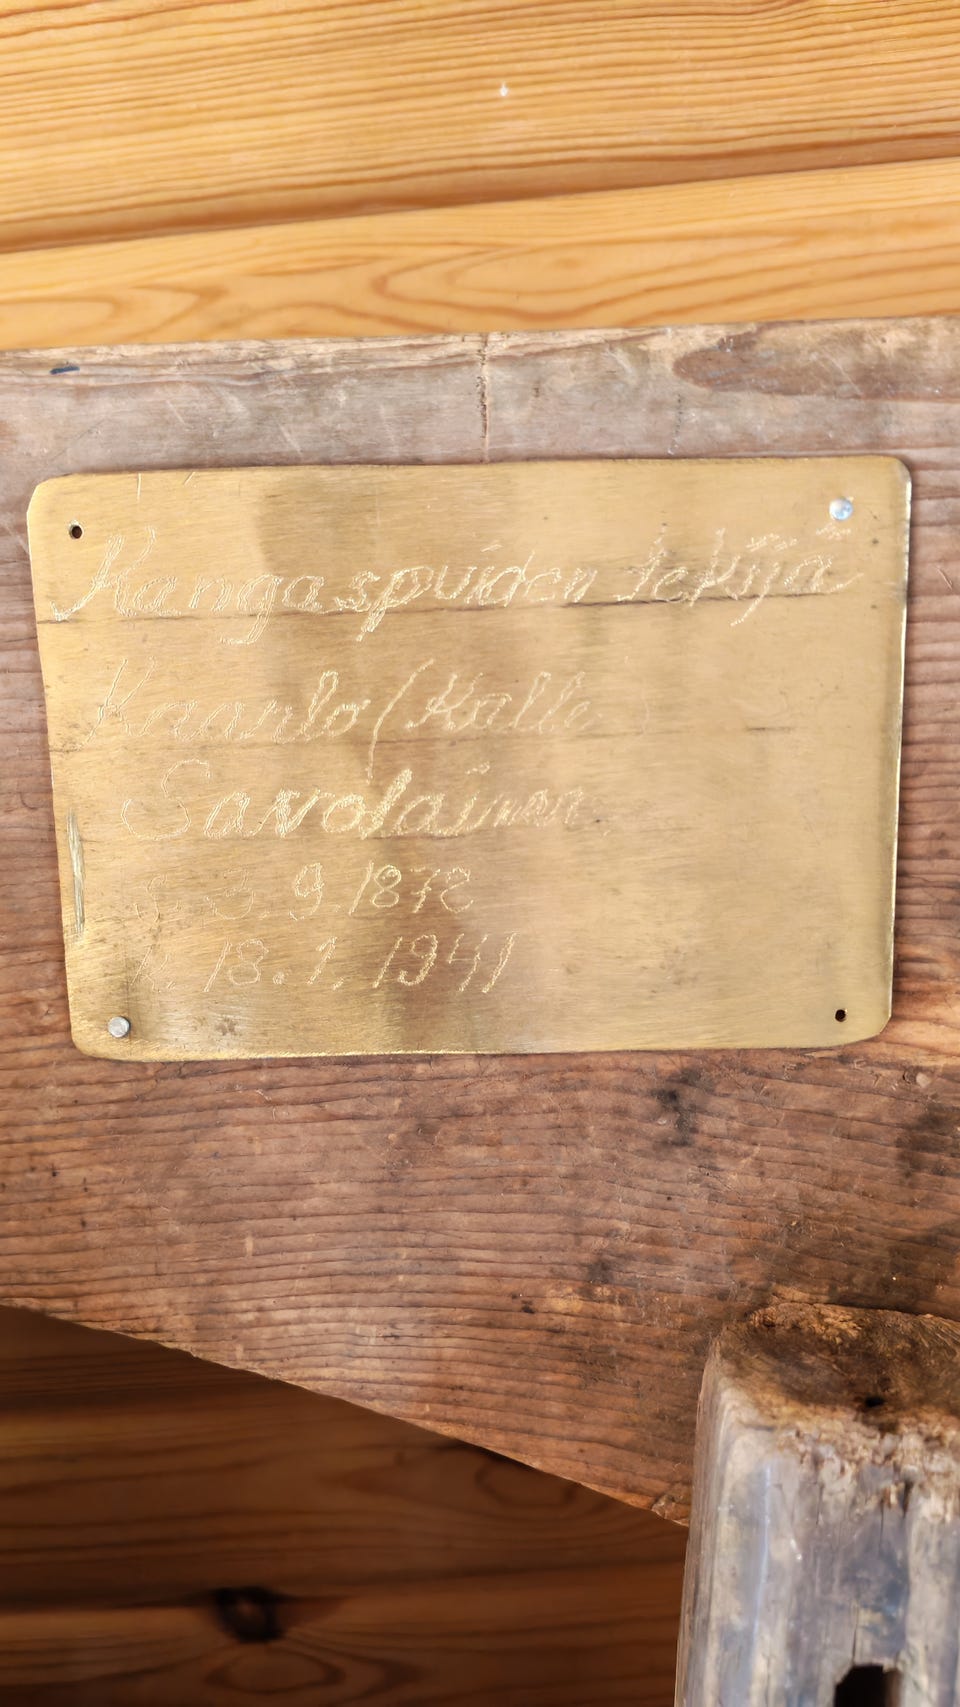 Kangaspuiden tekijä
Kaarlo (Kalle)
Savolainen
s. 3. 9. 1872
k. 18. 1. 1941